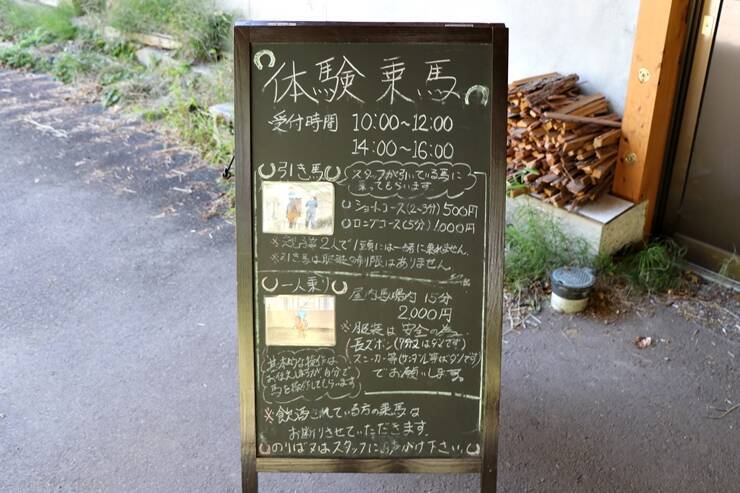 体験乗馬
受付時間 10:00～12:00
14:00～16:00
引き馬
スタッフが引いている馬に
乗ってもらいます
ショートコース(2～3分) 500円
ロングコース(5分) 1,000円
※ 2人で1頭には一緒に乗れません。
※引き馬は 制限はありません。
一人乗り
屋内馬場内 15分
2,000円
※服装は安全の為
長ズボン(7分丈はダメです)
スニーカー等(サンダル等はダメです)
でお願いします。
基本的な操作は
お伝えしますが自分で
馬を操作してもらいます
※飲酒されている方の乗馬は
お断りさせていただきます。
のりば又はスタッフにお声かけ下さい。